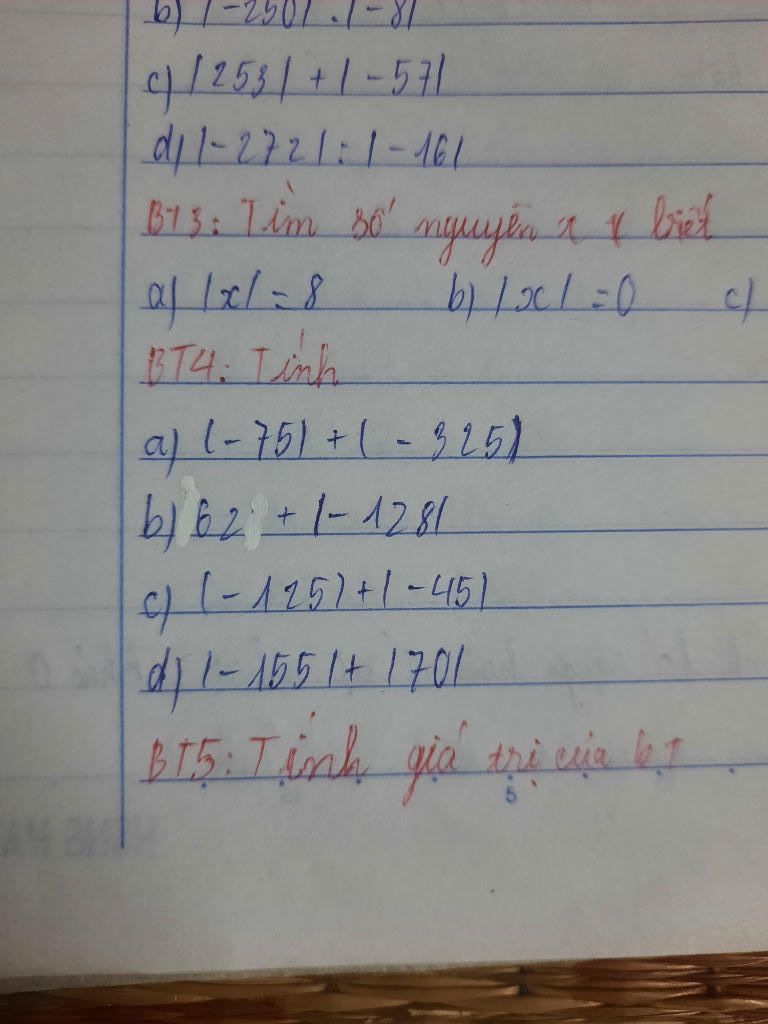 b) |-250| . |-8|
c) |253| + |-57|
d) |-272| : |-16|
BT3: Tìm số nguyên x biết
a) |x| = 8 b) |x| = 0 c)
BT4: Tính
a) (-75) + (-325)
b) 62 + |-128|
c) (-125) + |-45|
d) |-155| + |70|
BT5: Tính giá trị của BT
5